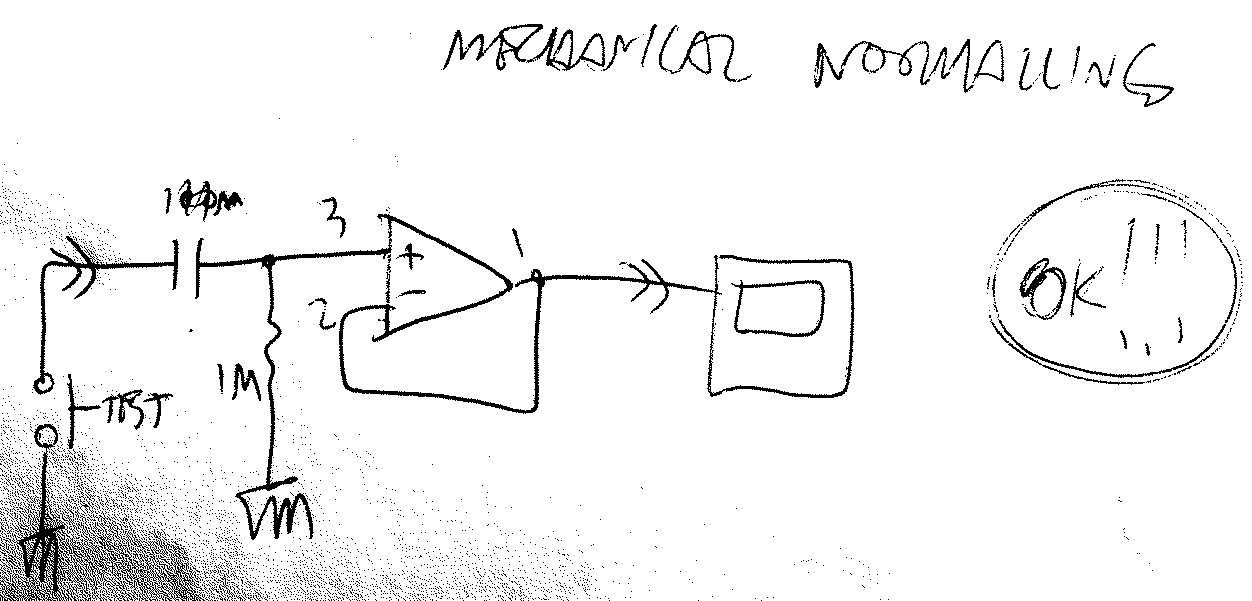 MECHANICAL NORMALLING
3
+
1
-
2
1M
TEST
OK !!!